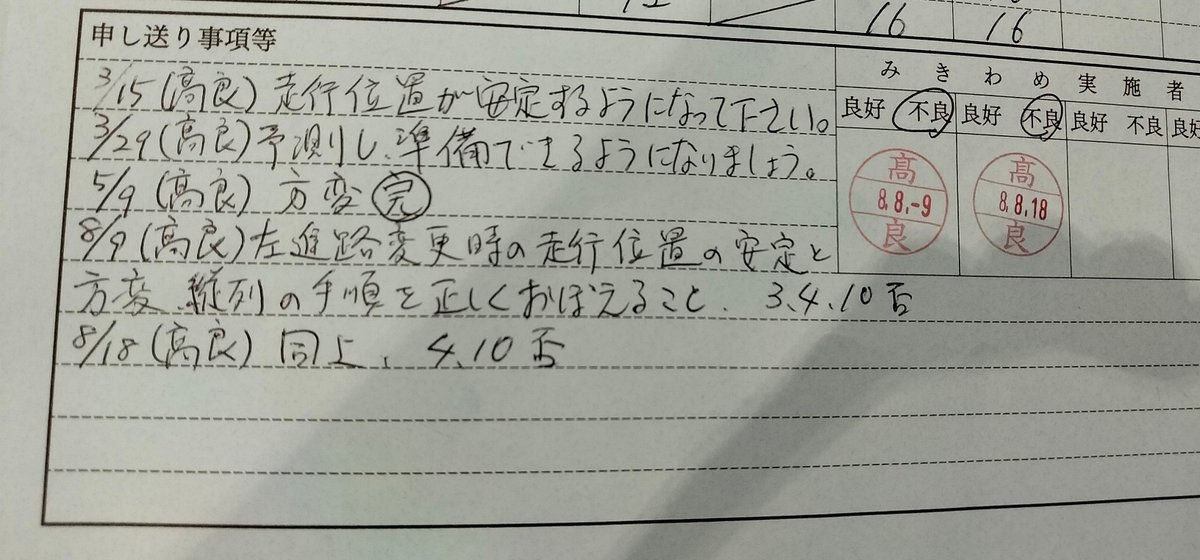 16 16
申し送り事項等
みきわめ実施者
良好 不良 良好 不良 良好 不良 良好
3/15(高良)走行位置が安定するようになって下さい。
3/29(高良)予測し、準備できるようになりましょう。
5/9(高良) 方変 完
8/9(高良)左進路変更時の走行位置の安定と
方変 縦列の手順を正しくおぼえること、 3.4.10否
8/18(高良) 同上、 4.10否
髙 8.8.-9 良
髙 8.8.18 良